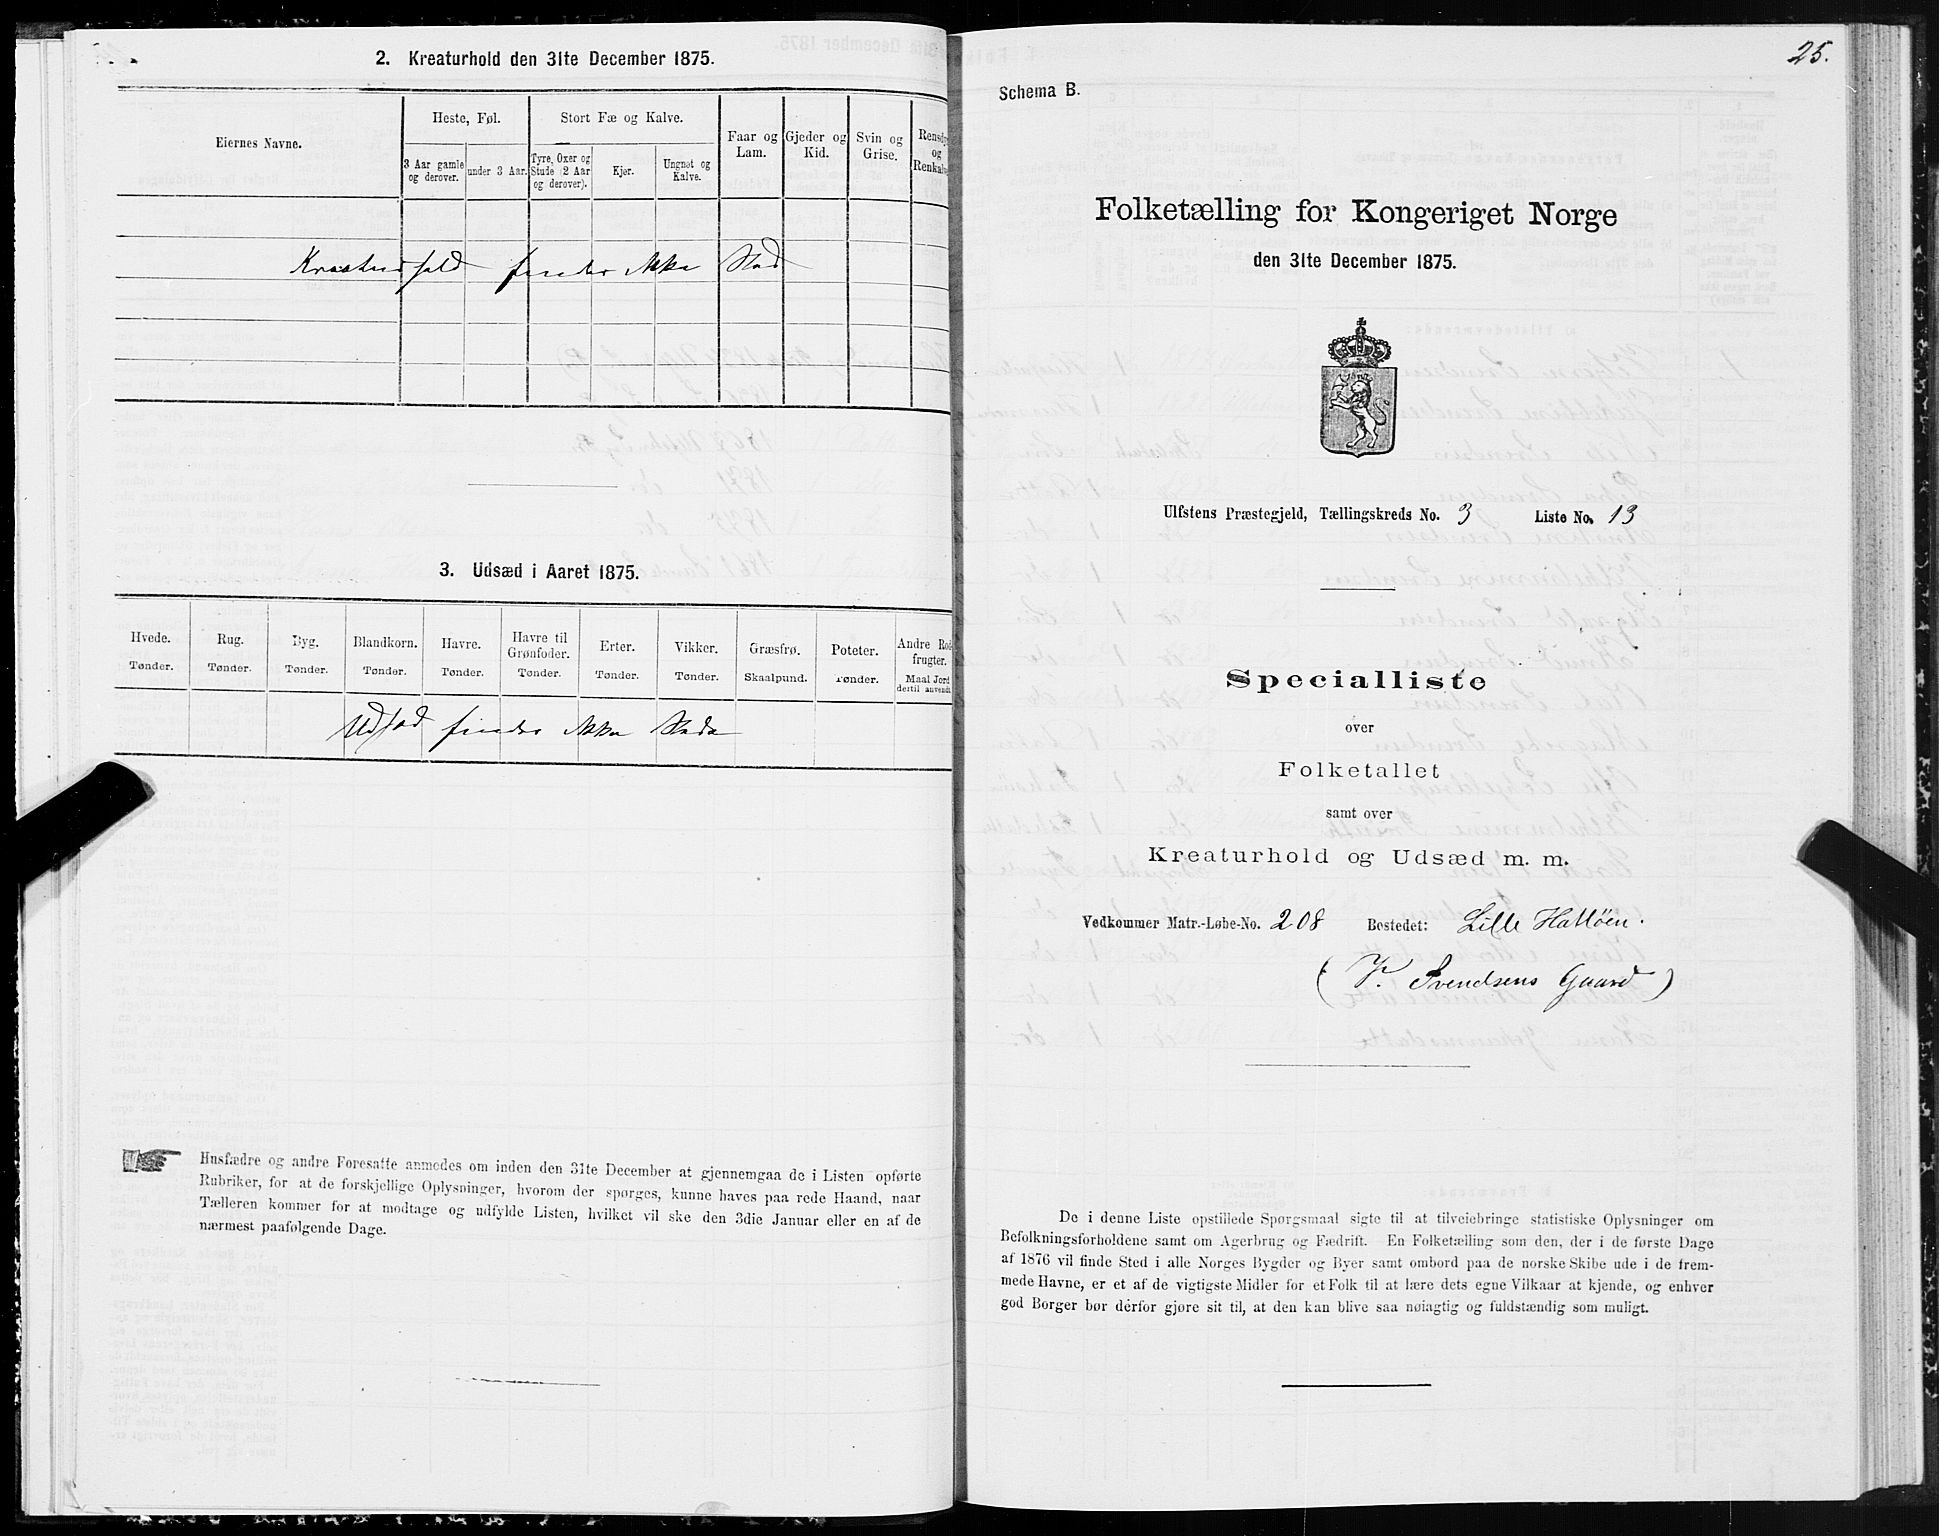 2. Kreaturhold den 31te December 1875.
Eiernes Navne.
Heste, Føl.
Stort Fæ og Kalve.
Faar og Lam.
Gjeder og Kid.
Svin og Grise.
Rensdyr og Renkalve
3 Aar gamle og derover.
under 3 Aar.
Tyre, Oxer og Stude (2 Aar og derover).
Kjør.
Ungnøt og Kalve.
Kreaturhold finder ikke Sted
3. Udsæd i Aaret 1875.
Hvede. Rug. Byg. Blandkorn. Havre. Havre til Grønfoder. Erter. Vikker. Græsfrø. Poteter. Andre Rodfrugter.
Tønder. Tønder. Tønder. Tønder. Tønder. Tønder. Tønder. Tønder. Skaalpund. Tønder. Maal Jord dertil anvendt
Udsæd finder ikke Sted
Husfædre og andre Foresatte anmodes om inden den 31te December at gjennemgaa de i Listen opførte
Rubriker, for at de forskjellige Oplysninger, hvorom der spørges, kunne haves paa rede Haand, naar
Tælleren kommer for at modtage og udfylde Listen, hvilket vil ske den 3die Januar eller en af de
nærmest paafølgende Dage.
25.
Schema B.
Folketælling for Kongeriget Norge
den 31te December 1875.
Ulfstens Præstegjeld, Tællingskreds No. 3 Liste No. 13
Specialliste
over
Folketallet
samt over
Kreaturhold og Udsæd m. m.
Vedkommer Matr.-Løbe-No. 208 Bostedet: Lille Hattøen.
(V. Svendsens Gaard)
De i denne Liste opstillede Spørgsmaal sigte til at tilveiebringe statistiske Oplysninger om
Befolkningsforholdene samt om Agerbrug og Fædrift. En Folketælling som den, der i de første Dage
af 1876 vil finde Sted i alle Norges Bygder og Byer samt ombord paa de norske Skibe ude i de frem-
mede Havne, er et af de vigtigste Midler for et Folk til at lære dets egne Vilkaar at kjende, og enhver
god Borger bør derfor gjøre sit til, at den kan blive saa nøiagtig og fuldstændig som muligt.